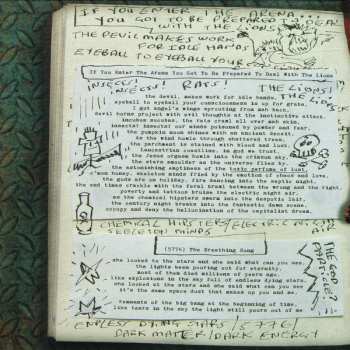 IF YOU ENTER THE ARENA
YOU GOT TO BE PREPARED TO DEAL
WITH THE LIONS
THE DEVIL MAKES WORK
FOR IDLE HANDS
EYEBALL TO EYEBALL YOUR
If You Enter The Arena You Got To Be Prepared To Deal With The Lions
INSECTS!
INSECTS! RATS!
THE LIONS!
THE LIONS
the devil, makes work for idle hands,
eyeball to eyeball your consciousness is up for grabs.
I got angel's wings sprouting from ash back,
devil horns project with evil thoughts at the instinctive attack.
the rats crawl all over ash skin,
insects! insects! our minds poisoned by powder and fear,
the pumpkin moon shines with an ancient deceit,
as the wind howls through shattered trees,
the parchment is stained with blood and lust
Lancastrian coastline, in god we trust.
the Jesus orgasm bolts into the crimson sky,
the stars smoulder as the universe flies by,
the astonishing emptiness of the toxic perfume of lust,
c'mon honey, skeleton minds fried by the emotion of chaos and love.
the gods are on holiday, fire dancing into the septic night,
the end times crackle with the feral trawl between the wrong and the right,
poverty and tattoo bruise the electric night air,
as the chemical hipsters smears into the deepest lair,
the century night breaks into the fantastic dawn scene,
occupy and deny the hallucination of the capitalist dream.
CHEMICAL HIPSTERS/ELECTRIC NIGHT AIR
SKELETAL MINDS
(5776) The Breathing Song
THE GOD PARTICLE?
she looked to the stars and she said what can you see,
the lights been pouring out for eternity.
Most of them died millions of years ago.
like explosions in the sky full of endless dying stars.
she looked at the stars and she said what can you see
it's the same space dust that makes up you and me.
remnants of the big bang at the beginning of time,
like tears in the sky the light still pours out of me
ENDLESS DYING STARS/5776/
DARK MATTER/DARK ENERGY